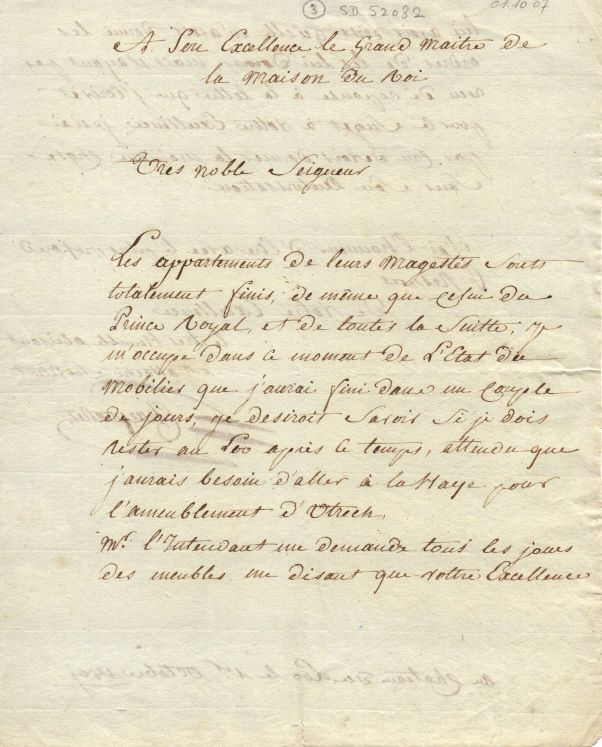 3 SD 52082 01.10.07
A Son Excellence le Grand Maitre de
la Maison du Roi
Tres Noble Seigneur
Les appartements de leurs Magestés Sonts
totalement finis, de même que celui du
Prince Royal, et de toutes la Suitte; je
m'occupe dans ce moment de L'Etat du
Mobilier que j'aurai fini dans un Couple
de jours, je desirois Savoir Si je dois
rester au Loo après ce temps, attendu que
j'aurais besoin d'aller à la Haye pour
l'ameublement d'Utrech.
Mr. l'Intendant me demande tous les jours
des meubles me disant que Vottre Excellence